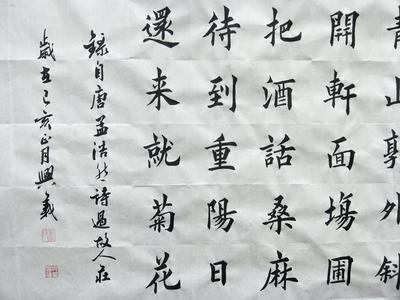 青山郭外斜
開軒面場圃
把酒話桑麻
待到重陽日
還来就菊花
錄自唐孟浩然詩過故人莊
歲在己亥正月興義